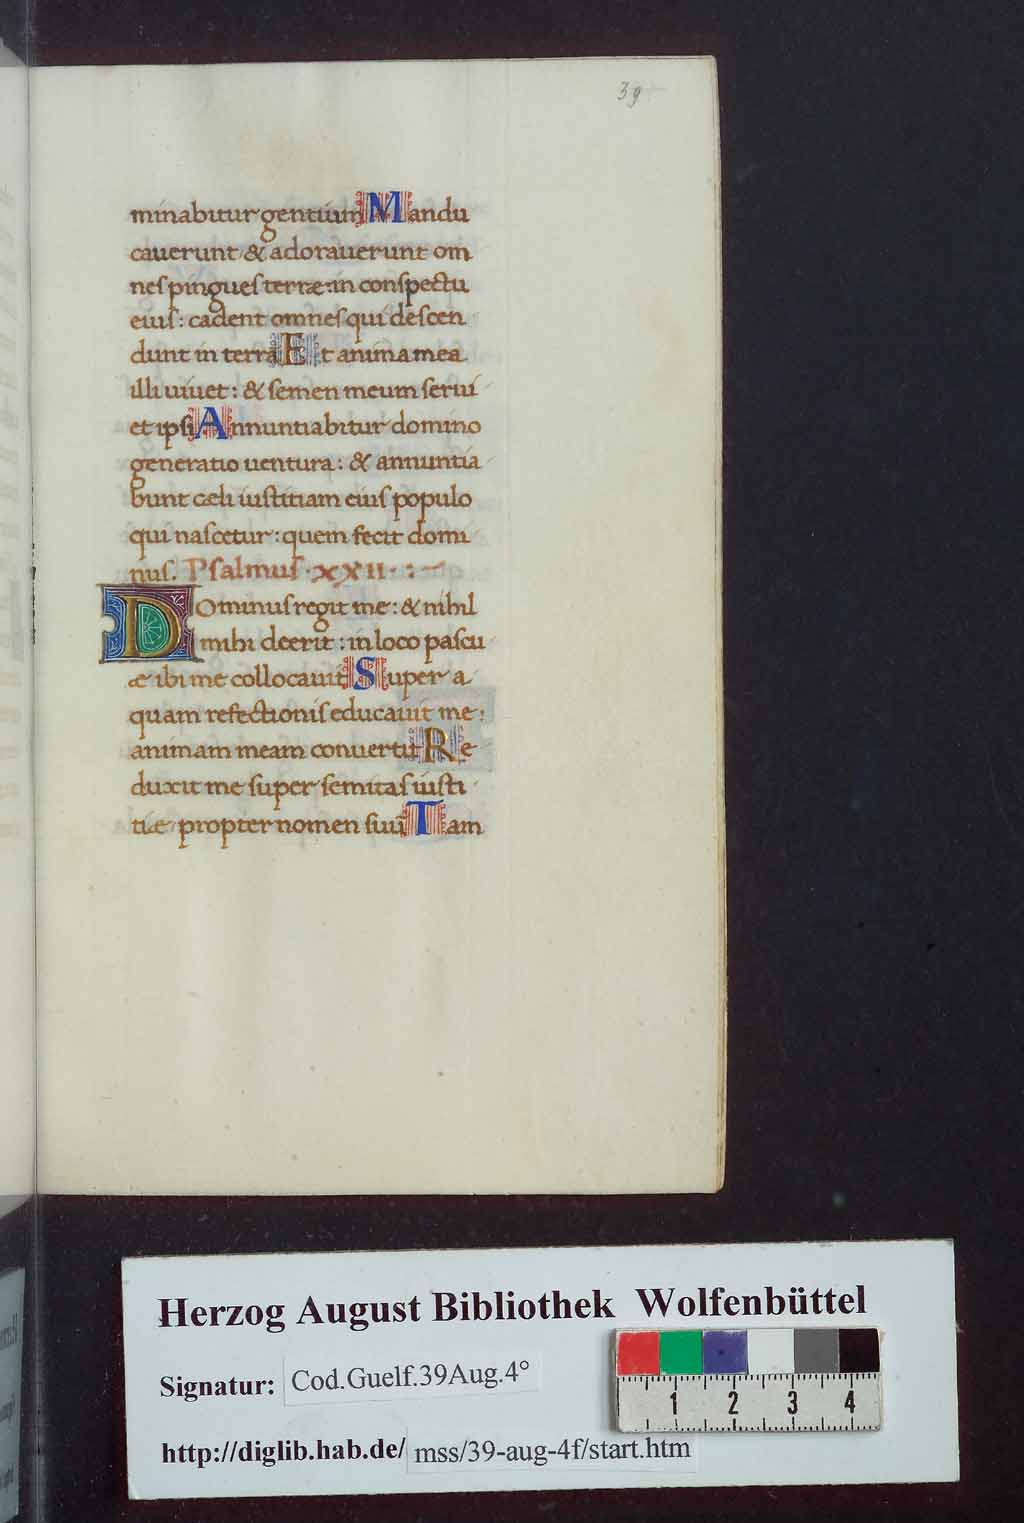 39
minabitur gentium Mandu
cauerunt & adorauerunt om
neſ pingueſ terræ: in conſpectu
eiuſ: cadent omneſ qui deſcen
dunt in terrã Et anima mea
illi uiuet: & ſemen meum ſerui
et ipſi Annuntiabitur domino
generatio uentura: & annuntia
bunt cæli iuſtitiam eiuſ populo
qui naſcetur: quem fecit domi
nuſ. Pſalmuſ ·XXII· : ~
Dominuſ regit me: & nihil
mihi deerit: in loco paſcu
æ ibi me collocauit Super a
quam refectioniſ educauit me:
animam meam conuertit Re
duxit me ſuper ſemitaſ iuſti
tiæ propter nomen ſuũ Tam
Herzog August Bibliothek Wolfenbüttel
Signatur: Cod.Guelf.39Aug.4°
1 2 3 4
http://diglib.hab.de/ mss/39-aug-4f/start.htm